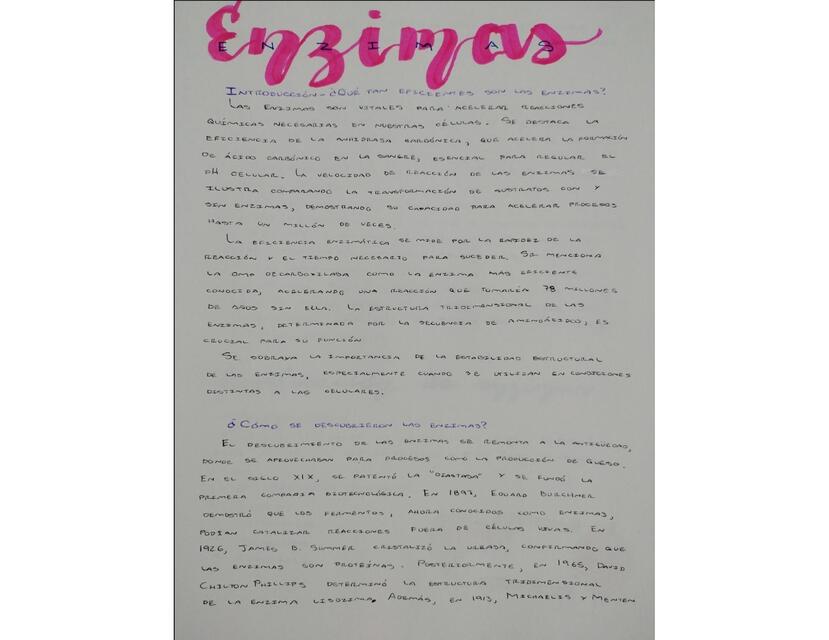 Enzimas
ENZIMAS
INTRODUCCIÓN - ¿QUÉ TAN EFICIENTES SON LAS ENZIMAS?
LAS ENZIMAS SON VITALES PARA ACELERAR REACCIONES
QUÍMICAS NECESARIAS EN NUESTRAS CÉLULAS. SE DESTACA LA
EFICIENCIA DE LA ANHIDRASA CARBÓNICA, QUE ACELERA LA FORMACIÓN
DE ÁCIDO CARBÓNICO EN LA SANGRE, ESENCIAL PARA REGULAR EL
PH CELULAR. LA VELOCIDAD DE REACCIÓN DE LAS ENZIMAS SE
ILUSTRA COMPARANDO LA TRANSFORMACIÓN DE SUSTRATOS CON Y
SIN ENZIMAS, DEMOSTRANDO SU CAPACIDAD PARA ACELERAR PROCESOS
HASTA UN MILLÓN DE VECES.
LA EFICIENCIA ENZIMÁTICA SE MIDE POR LA RAPIDEZ DE LA
REACCIÓN Y EL TIEMPO NECESARIO PARA SUCEDER. SE MENCIONA
LA OMP DECARBOXILASA COMO LA ENZIMA MÁS EFICIENTE
CONOCIDA, ACELERANDO UNA REACCIÓN QUE TOMARÍA 78 MILLONES
DE AÑOS SIN ELLA. LA ESTRUCTURA TRIDIMENSIONAL DE LAS
ENZIMAS, DETERMINADA POR LA SECUENCIA DE AMINOÁCIDOS, ES
CRUCIAL PARA SU FUNCIÓN
SE SUBRAYA LA IMPORTANCIA DE LA ESTABILIDAD ESTRUCTURAL
DE LAS ENZIMAS, ESPECIALMENTE CUANDO SE UTILIZAN EN CONDICIONES
DISTINTAS A LAS CELULARES.
¿CÓMO SE DESCUBRIERON LAS ENZIMAS?
EL DESCUBRIMIENTO DE LAS ENZIMAS SE REMONTA A LA ANTIGÜEDAD,
DONDE SE APROVECHABAN PARA PROCESOS COMO LA PRODUCCIÓN DE QUESO.
EN EL SIGLO XIX, SE PATENTÓ LA "DIASTASA" Y SE FUNDÓ LA
PRIMERA COMPAÑIA BIOTECNOLÓGICA. EN 1897, EDUARD BUCHNER
DEMOSTRÓ QUE LOS FERMENTOS, AHORA CONOCIDOS COMO ENZIMAS,
PODIAN CATALIZAR REACCIONES FUERA DE CÉLULAS VIVAS. EN
1926, JAMES B. SUMMER CRISTALIZÓ LA UREASA, CONFIRMANDO QUE
LAS ENZIMAS SON PROTEÍNAS. POSTERIORMENTE, EN 1965, DAVID
CHILTON PHILLIPS DETERMINÓ LA ESTRUCTURA TRIDIMENSIONAL
DE LA ENZIMA LISOZIMA. ADEMÁS, EN 1913, MICHAELIS Y MENTEN